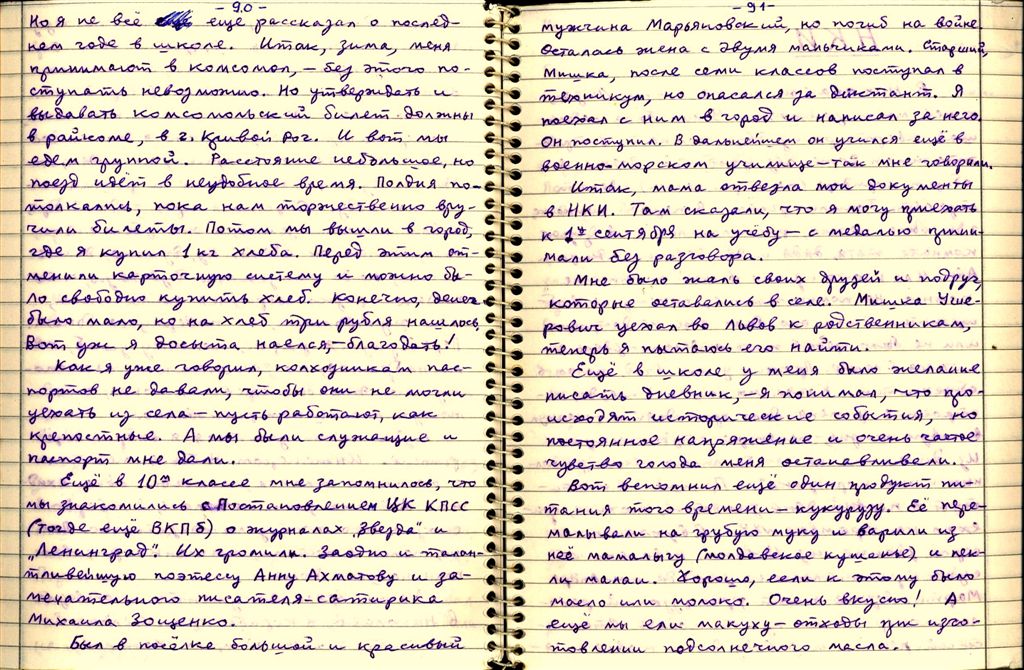 - 90 -
Но я не всё ещё рассказал о послед-
нем годе в школе. Итак, зима, меня
принимают в комсомол, – без этого по-
ступать невозможно. Но утверждать и
выдавать комсомольский билет должны
в райкоме, в г. Кривой Рог. И вот мы
едем группой. Расстояние небольшое, но
поезд идёт в неудобное время. Полдня по-
толкались, пока нам торжественно вру-
чили билеты. Потом мы вышли в город,
где я купил 1 кг хлеба. Перед этим от-
менили карточную систему и можно бы-
ло свободно купить хлеб. Конечно, денег
было мало, но на хлеб три рубля нашлось.
Вот уж я досыта наелся, – благодать!
Как я уже говорил, колхозникам пас-
портов не давали, чтобы они не могли
уехать из села – пусть работают, как
крепостные. А мы были служащие и
паспорт мне дали.
Ещё в 10ом классе мне запомнилось, что
мы знакомились с Постановлением ЦК КПСС
(тогда ещё ВКПб) о журналах „Звезда" и
„Ленинград". Их громили. Заодно и талан-
тливейшую поэтессу Анну Ахматову и за-
мечательного писателя-сатирика
Михаила Зощенко.
Был в посёлке большой и красивый
- 91 -
мужчина Марьяновский, но погиб на войне.
Осталась жена с двумя мальчиками. Старший,
Мишка, после семи классов поступал в
техникум, но опасался за диктант. Я
поехал с ним в город и написал за него.
Он поступил. В дальнейшем он учился ещё в
военно-морском училище – так мне говорили.
Итак, мама отвезла мои документы
в НКИ. Там сказали, что я могу приехать
к 1му сентября на учёбу – с медалью прини-
мали без разговора.
Мне было жаль своих друзей и подруг,
которые оставались в селе. Мишка Уше-
рович уехал во Львов к родственникам,
теперь я пытаюсь его найти.
Ещё в школе у меня было желание
писать дневник, – я понимал, что про-
исходят исторические события, но
постоянное напряжение и очень частое
чувство голода меня останавливали.
Вот вспомнил ещё один продукт пи-
тания того времени – кукурузу. Её пере-
малывали на грубую муку и варили из
неё мамалыгу (молдавское кушанье) и пек-
ли малаи. Хорошо, если к этому было
масло или молоко. Очень вкусно! А
ещё мы ели макуху – отходы при изго-
товлении подсолнечного масла.